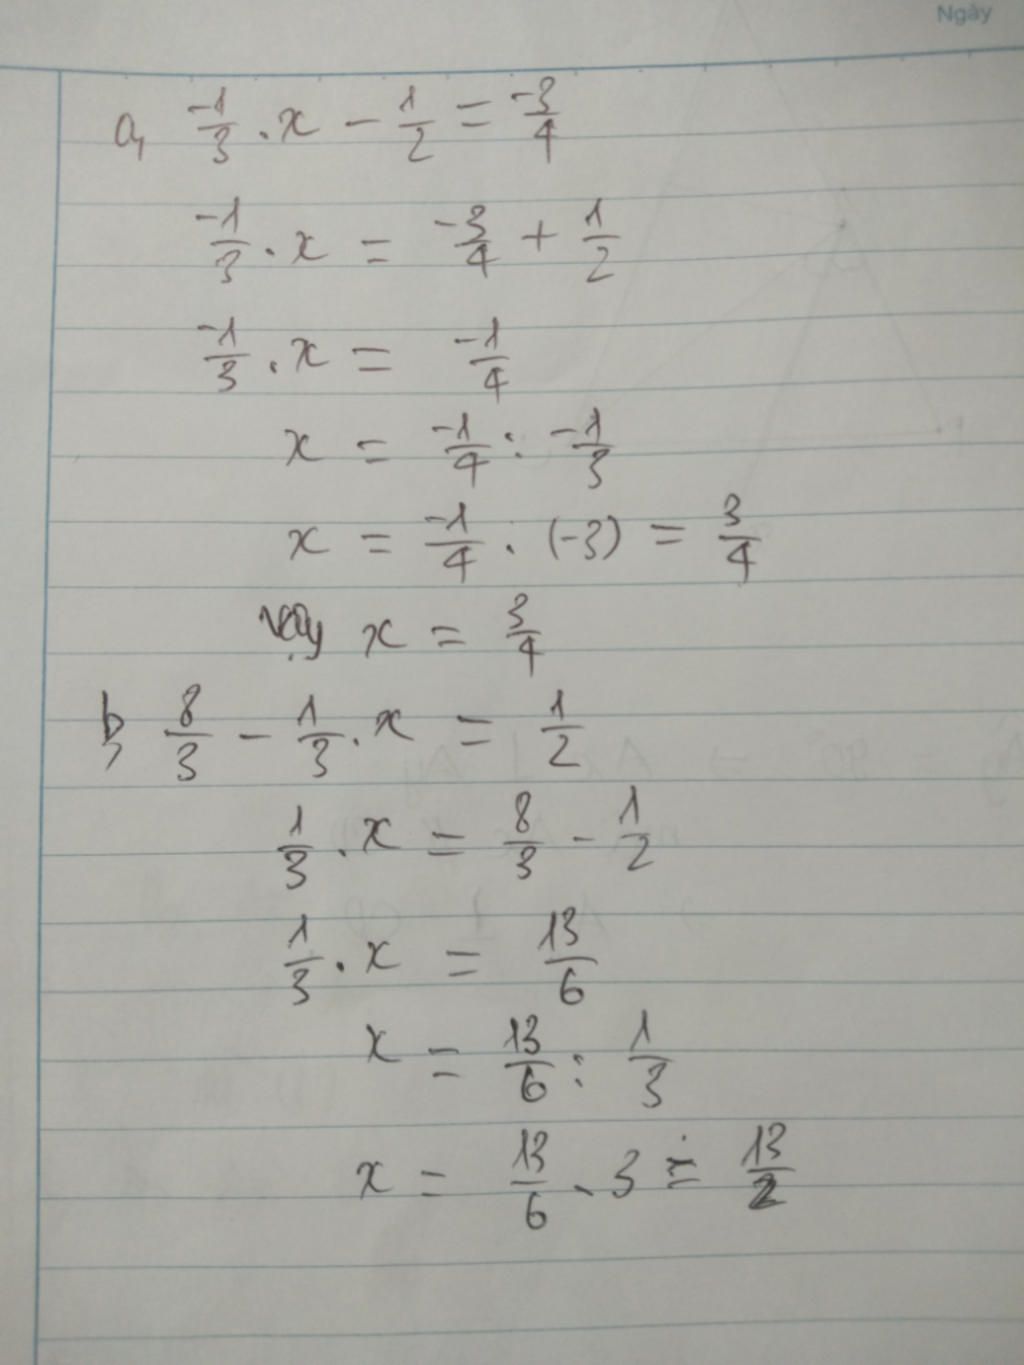 Ngày
a, -1/3 . x - 1/2 = -3/4
-1/3 . x = -3/4 + 1/2
-1/3 . x = -1/4
x = -1/4 : -1/3
x = -1/4 . (-3) = 3/4
vậy x = 3/4
b, 8/3 - 1/3 . x = 1/2
1/3 . x = 8/3 - 1/2
1/3 . x = 13/6
x = 13/6 : 1/3
x = 13/6 . 3 = 13/2